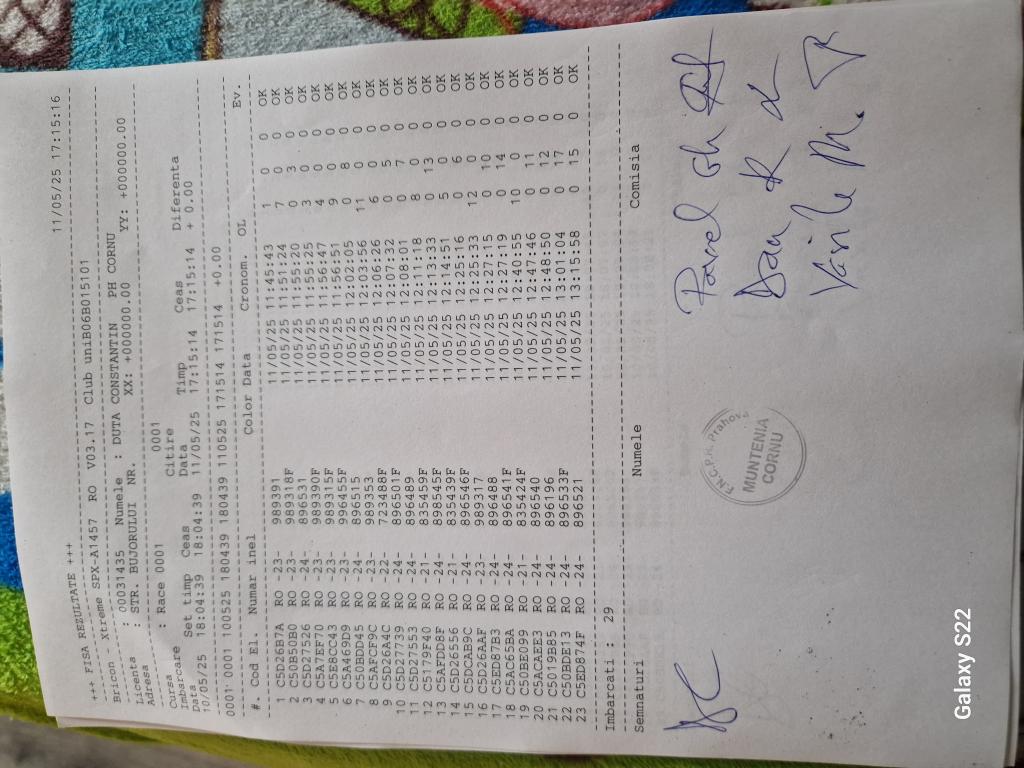 +++ FISA REZULTATE +++ 11/05/25 17:15:16
Bricon - Xtreme SPX-A1457 RO V03.17 Club uniB06B015101
Licenta : 00031435 Numele : DUTA CONSTANTIN PH CORNU
Adresa : STR. BUJORULUI NR. XX: +000000.00 YY: +000000.00
Cursa : Race 0001 0001
Imbarcare Citire
Data Set timp Ceas Data Timp Ceas Diferenta
10/05/25 18:04:39 18:04:39 11/05/25 17:15:14 17:15:14 + 0.00
0001 0001 100525 180439 180439 110525 171514 171514 +0.00
#. Cod El. Numar inel Color Data Cronom. OL Ev.
1 C5D26B7A RO -23- 989391 11/05/25 11:45:43 1 0 0 OK
2 C50B50B0 RO -23- 989318F 11/05/25 11:51:24 7 0 0 OK
3 C5D27526 RO -24- 896531 11/05/25 11:55:20 0 3 0 OK
4 C5A7EF70 RO -23- 989390F 11/05/25 11:55:25 3 0 0 OK
5 C5E8CC43 RO -23- 989315F 11/05/25 11:56:47 4 0 0 OK
6 C5A469D9 RO -23- 996455F 11/05/25 11:56:51 9 0 0 OK
7 C50BDD45 RO -24- 896515 11/05/25 12:02:05 0 8 0 OK
8 C5AFCF9C RO -23- 989353 11/05/25 12:03:56 11 0 0 OK
9 C5D26A4C RO -22- 723488F 11/05/25 12:06:26 6 0 0 OK
10 C5D27739 RO -24- 896501F 11/05/25 12:07:32 0 5 0 OK
11 C5D27553 RO -24- 896489 11/05/25 12:08:01 0 7 0 OK
12 C5179F40 RO -21- 835459F 11/05/25 12:11:18 8 0 0 OK
13 C5AFDD8F RO -24- 898545F 11/05/25 12:13:33 0 13 0 OK
14 C5D26556 RO -21- 835439F 11/05/25 12:14:51 5 0 0 OK
15 C5DCAB9C RO -24- 896546F 11/05/25 12:25:16 0 6 0 OK
16 C5D26AAF RO -23- 989317 11/05/25 12:25:33 12 0 0 OK
17 C5ED87B3 RO -24- 896488 11/05/25 12:27:15 0 10 0 OK
18 C5AC65BA RO -24- 896541F 11/05/25 12:27:19 0 14 0 OK
19 C50BE099 RO -21- 835424F 11/05/25 12:40:55 10 0 0 OK
20 C5ACAEE3 RO -24- 896540 11/05/25 12:47:46 0 11 0 OK
21 C5019B85 RO -24- 896196 11/05/25 12:48:50 0 12 0 OK
22 C50BDE13 RO -24- 896533F 11/05/25 13:01:04 0 17 0 OK
23 C5ED874F RO -24- 896521 11/05/25 13:15:58 0 15 0 OK
Imbarcati : 29
Semnaturi Numele Comisia
Pavel Gh
Dan K
Vasile M.
F.N.C.P.R. Prahova
MUNTENIA
CORNU
Galaxy S22